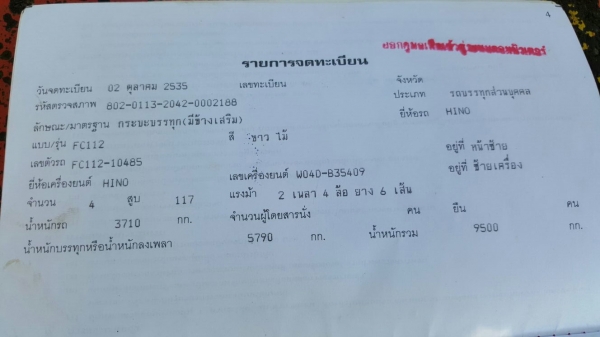 4
รายการจดทะเบียน
วันจดทะเบียน 02 ตุลาคม 2535 เลขทะเบียน จังหวัด
รหัสตรวจสภาพ 802-0113-2042-0002188 ประเภท รถบรรทุกส่วนบุคคล
ลักษณะ/มาตรฐาน กระบะบรรทุก(มีข้างเสริม) ยี่ห้อรถ HINO
แบบ/รุ่น FC112 สี ขาว ไม้
เลขตัวรถ FC112-10485 อยู่ที่ หน้าซ้าย
ยี่ห้อเครื่องยนต์ HINO เลขเครื่องยนต์ W04D-B35409 อยู่ที่ ซ้ายเครื่อง
จำนวน 4 สูบ 117 แรงม้า 2 เพลา 4 ล้อ ยาง 6 เส้น
น้ำหนักรถ 3710 กก. จำนวนผู้โดยสารนั่ง คน ยืน คน
น้ำหนักบรรทุกหรือน้ำหนักลงเพลา 5790 กก. น้ำหนักรวม 9500 กก.